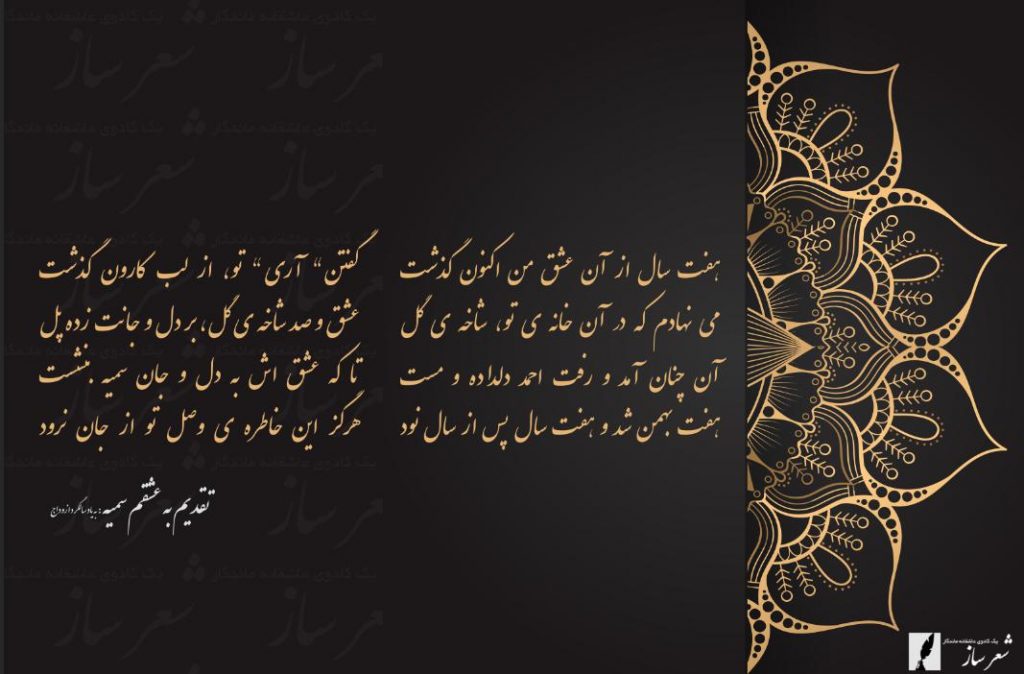 هفت سال از آن عشق من اکنون گذشت
گفتن “ آری “ تو، از لب کارون گذشت
می نهادم که در آن خانه ی تو، شاخه ی گل
عشق و صد شاخه ی گل، بر دل و جانت زده پل
آن چنان آمد و رفت احمد دلداده و مست
تا که عشق اش به دل و جان سمیه بنشست
هفت بهمن شد و هفت سال پس از سال نود
هرگز این خاطره ی وصل تو از جان نرود
تقدیم به عشقم سمیه : به یاد سالگرد ازدواج
یک کادوی عاشقانه ماندگار
شعر ساز